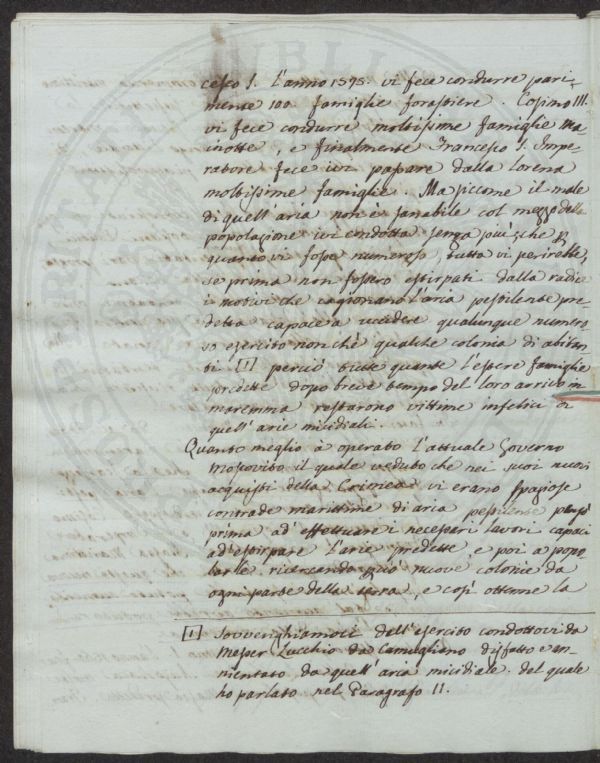 cesco I. l'anno 1575. vi fece condurre pari=
mente 100 famiglie forastiere. Cosimo III.
vi fece condurre moltissime famiglie Ma
inotte, e finalmente Francesco I. Impe=
ratore fece ivi passare dalla Lorena
moltissime famiglie. Ma siccome il male
di quell'aria non è sanabile col mezzo della
popolazione ivi condotta senza più, che p
quanto vi fosse numerosa, tutta vi perirebbe,
se prima non fossero estirpati dalla radice
i motivi che cagionano l'aria pestilente pre=
detta capace a uccidere qualunque numero=
so esercito non chè qualche colonia di abitan=
ti [1] perciò tutte quante l'estere famiglie
predette dopo breve tempo del loro arrivo in
maremma restarono vittime infelici di
quell'arie micidiali.
Quanto meglio à operato l'attuale Governo
Moscovito il quale veduto che nei suoi nuovi
acquisti della Crimea vi erano spaziose
contrade marittime di aria pestilente pensò
prima ad'effettuare i necessari lavori capaci
ad'estirpare l'arie predette, e poi a popo
larle ricercando più nuove colonie da
ogni parte della terra, e così ottenne la
[1] Sovvenghiamoci dell'esercito condottovi da
Messer Lucchio da Camugliano disfatto e an=
nientato da quell'aria micidiale, del quale
ho parlato nel Paragrafo II.